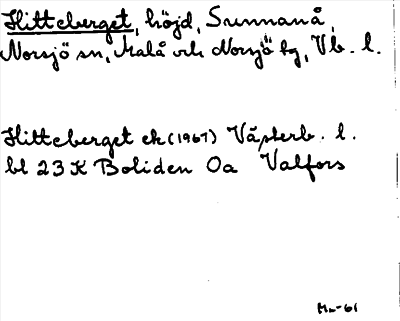 Hitteberget, höjd, Sunnanå,
Norsjö sn, Malå och Norsjö tg, Vb. l.
Hitteberget ek (1967) Västerb. l.
bl 23 K Boliden Oa Valfors